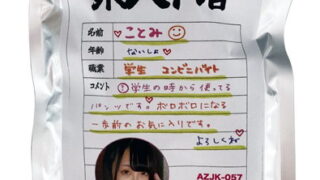 名前 ことみ
年齢 ないしょ
職業 学生 コンビニバイト
コメント 学生の時から使ってる
パンツです。ボロボロになる
一歩前のお気に入りです。
よろしくね
AZJK-057